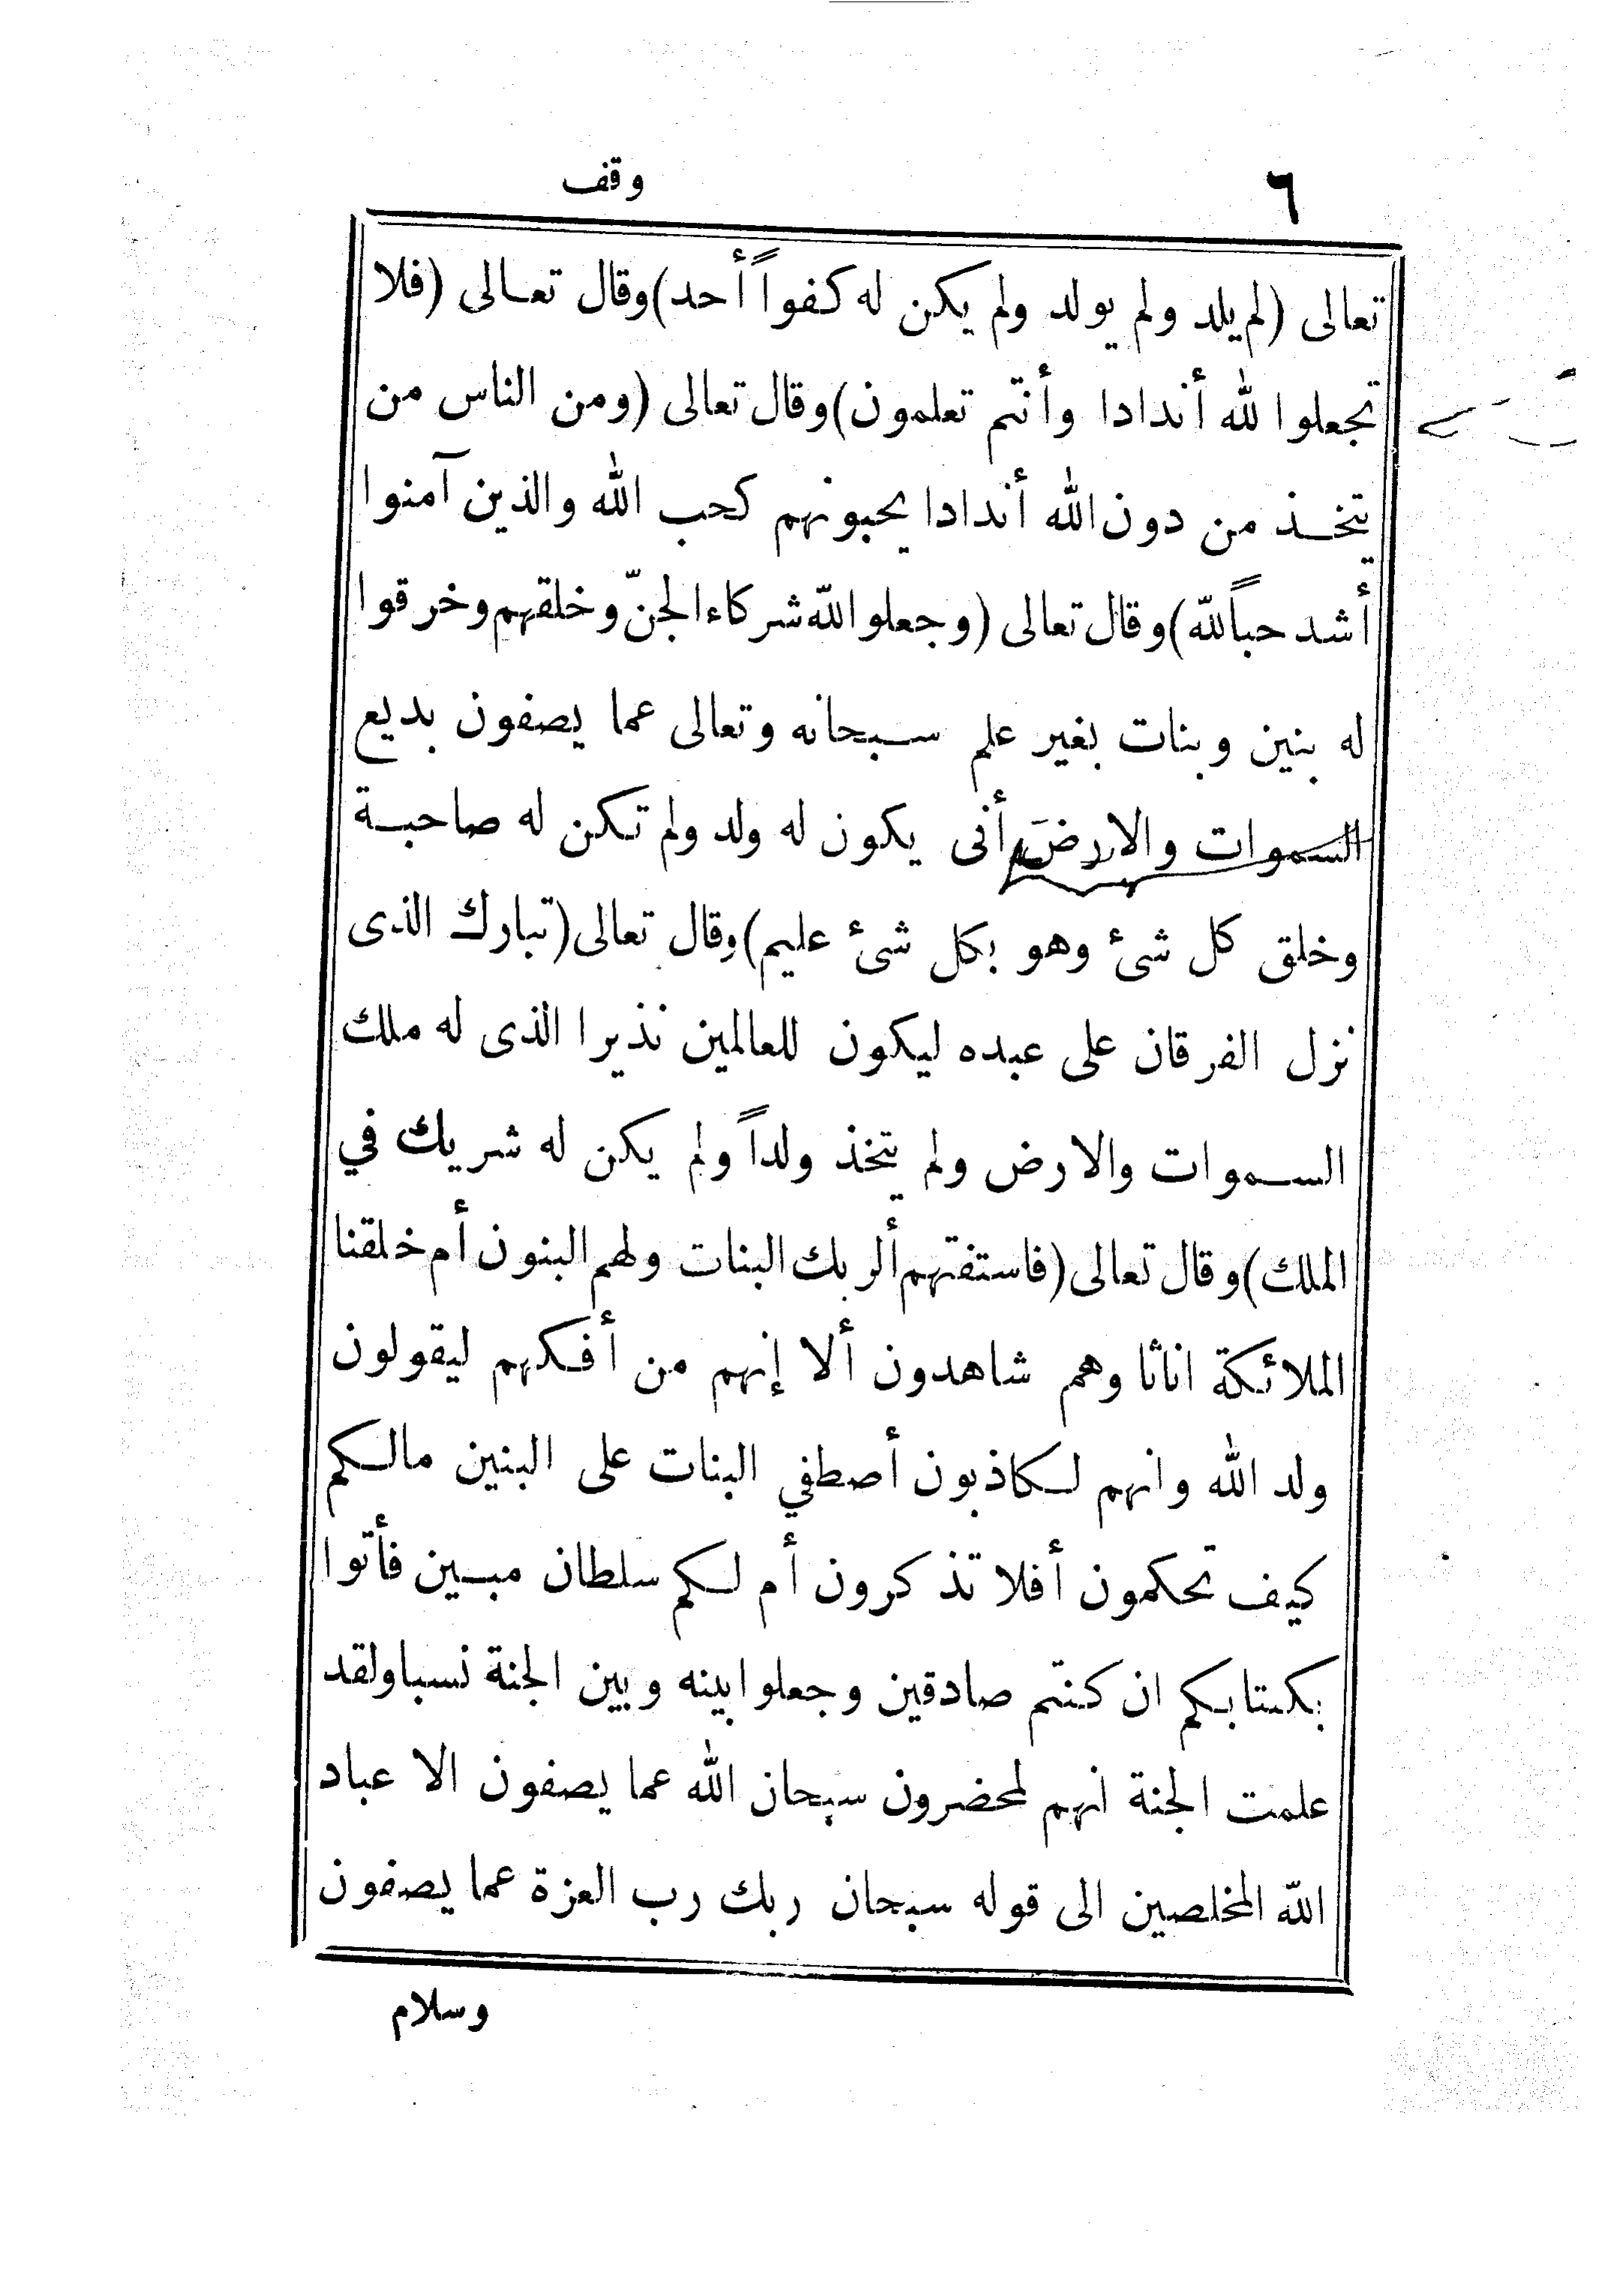 ٦
وقف
تعالى (لم يلد ولم يولد ولم يكن له كفواً أحد) وقال تعالى (فلا
تجعلوا لله أندادا وأنتم تعلمون) وقال تعالى (ومن الناس من
يتخذ من دون الله أندادا يحبونهم كحب الله والذين آمنوا
أشد حباً لله) وقال تعالى (وجعلوا لله شركاء الجنّ وخلقهم وخرقوا
له بنين وبنات بغير علم سبحانه وتعالى عما يصفون بديع
السموات والارض أنى يكون له ولد ولم تكن له صاحبة
وخلق كل شئ وهو بكل شئ عليم) وقال تعالى (تبارك الذى
نزل الفرقان على عبده ليكون للعالمين نذيرا الذى له ملك
السموات والارض ولم يتخذ ولداً ولم يكن له شريك في
الملك) وقال تعالى (فاستفتهم ألربك البنات ولهم البنون أم خلقنا
الملائكة اناثا وهم شاهدون ألا إنهم من أفكهم ليقولون
ولد الله وانهم لكاذبون أصطفي البنات على البنين مالكم
كيف تحكمون أفلا تذكرون أم لكم سلطان مبين فأتوا
بكتابكم ان كنتم صادقين وجعلوا بينه وبين الجنة نسبا ولقد
علمت الجنة انهم لمحضرون سبحان الله عما يصفون الا عباد
الله المخلصين الى قوله سبحان ربك رب العزة عما يصفون
وسلام